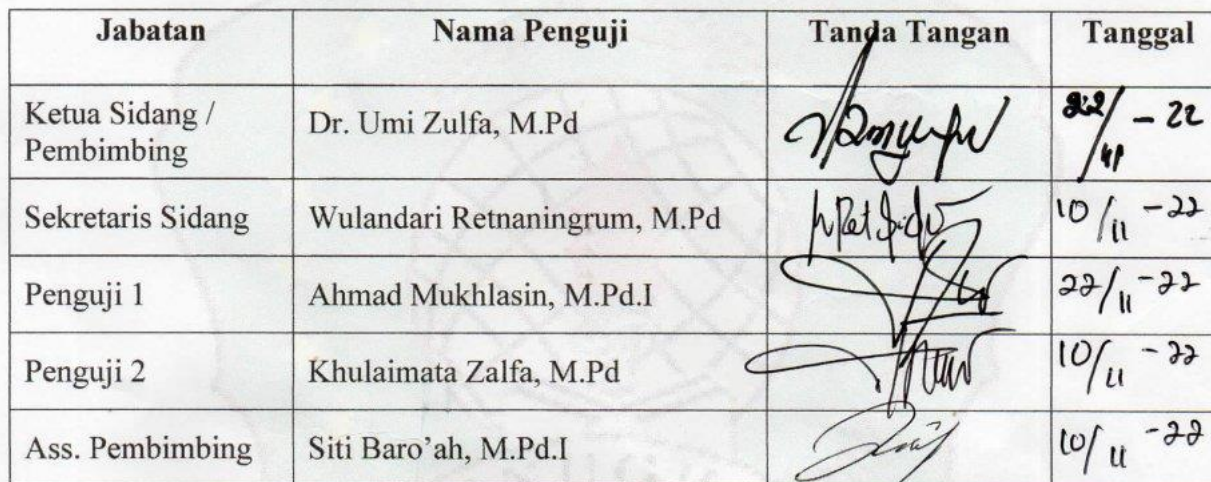 Jabatan Nama Penguji Tanda Tangan Tanggal
Ketua Sidang /
Pembimbing Dr. Umi Zulfa, M.Pd 22/11 - 22
Sekretaris Sidang Wulandari Retnaningrum, M.Pd 10/11 - 22
Penguji 1 Ahmad Mukhlasin, M.Pd.I 22/11 - 22
Penguji 2 Khulaimata Zalfa, M.Pd 10/11 - 22
Ass. Pembimbing Siti Baro'ah, M.Pd.I 10/11 - 22